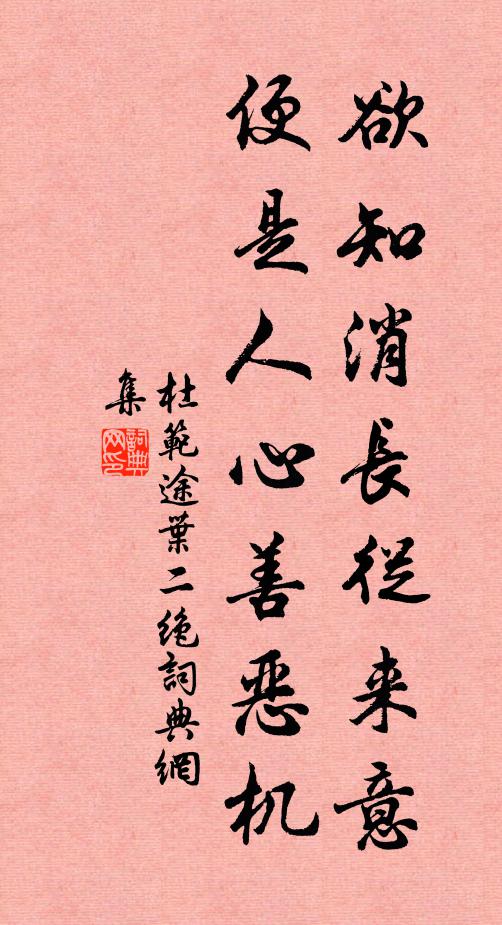 欲知消長從来意
便是人心善惡机
杜範途葉二絶詞典網
集
詞典
网印